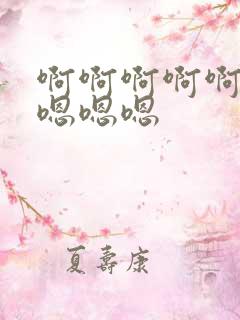 啊啊啊啊啊
嗯嗯嗯
夏壽康